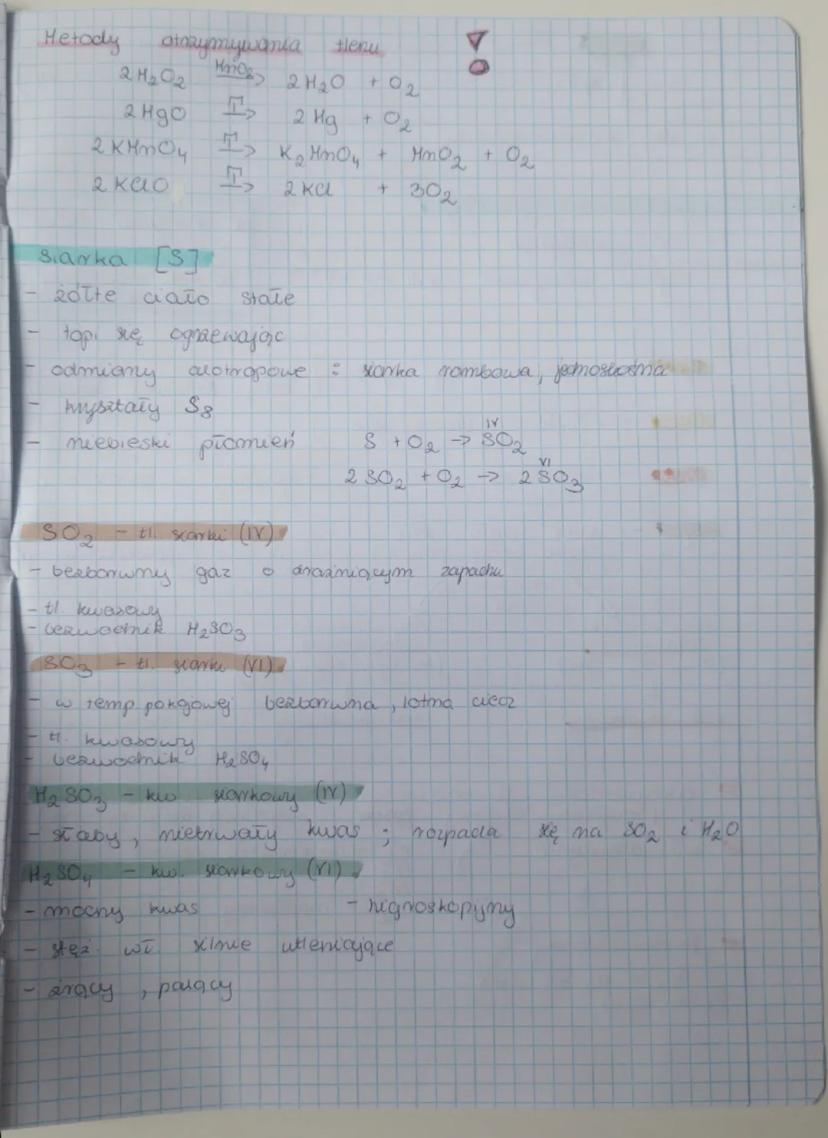 Metody otrzymywania tlenu
2H₂O₂ MnO₂→ 2H₂O + O₂
2HgO T→ 2Hg + O₂
2KMnO₄ T→ K₂MnO₄ + MnO₂ + O₂
2KClO T→ 2KCl + 3O₂
Siarka [S]
- żółte ciało stałe
- topi się ogrzewając
- odmiany alotropowe : siarka rombowa, jednoskośna
- kryształy S₈
- niebieski płomień S + O₂ → SO₂ IV
2SO₂ + O₂ → 2SO₃ VI
SO₂ - tl. siarki (IV)
- bezbarwny gaz o drażniącym zapachu
- tl. kwasowy
- bezwodnik H₂SO₃
SO₃ - tl. siarki (VI)
- w temp. pokojowej bezbarwna, lotna ciecz
- tl. kwasowy
- bezwodnik H₂SO₄
H₂SO₃ - kw siarkowy (IV)
- słaby, nietrwały kwas ; rozpada się na SO₂ i H₂O
H₂SO₄ - kw. siarkowy (VI)
- mocny kwas - higroskopijny
- stęż. wł silnie utleniające
- żrący, parzący